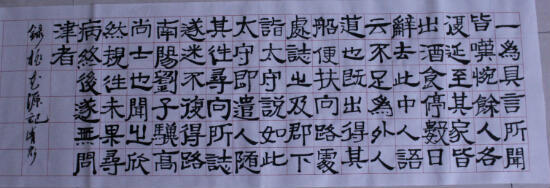 一為具言所聞
皆嘆惋餘人各
復延至其家皆
出酒食停數日
辭去此中人語
云不足為外人
道也既出得其
船便扶向路處
處誌之及郡下
詣太守說如此
太守即遣人隨
其往尋向所誌
遂迷不復得路
南陽劉子驥高
尚士也聞之欣
然規往未果尋
病終後遂無問
津者
錄桃花源記